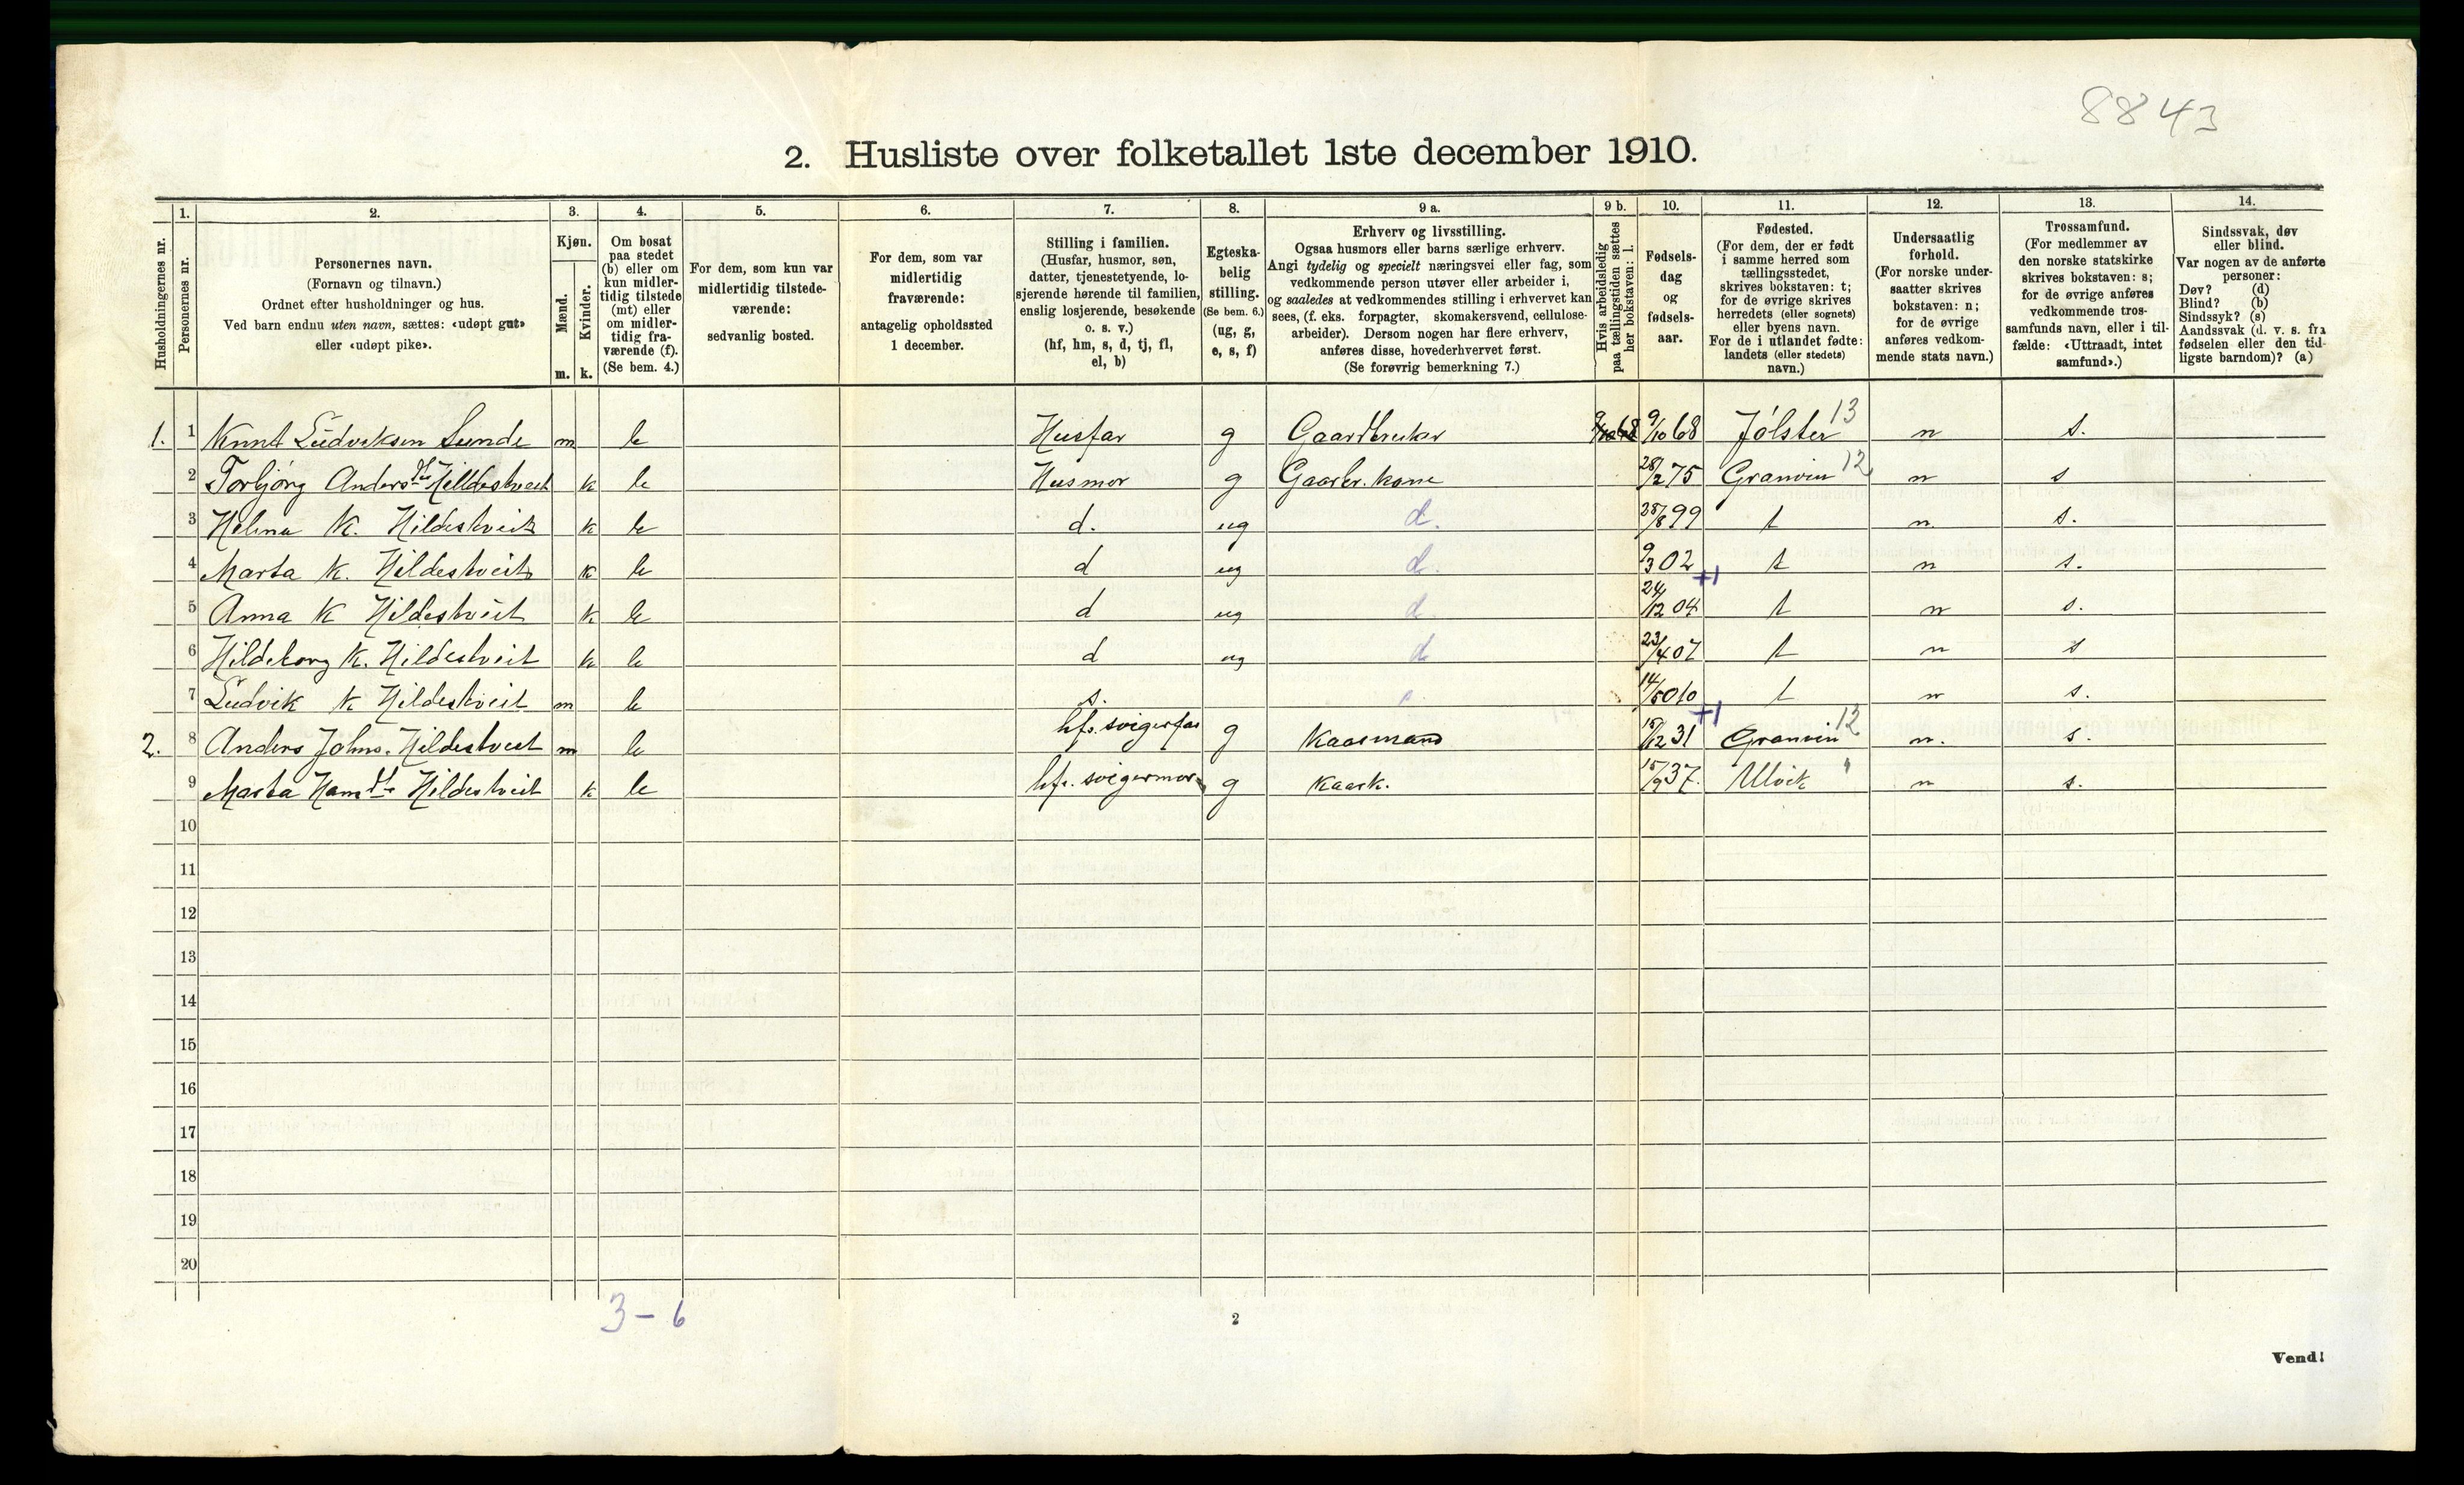 8843
2. Husliste over folketallet 1ste december 1910.
Husholdningernes nr.
1. Personernes nr.
2. Personernes navn.
(Fornavn og tilnavn.)
Ordnet efter husholdninger og hus.
Ved barn endnu uten navn, sættes: «udøpt gut»
eller «udøpt pike».
3. Kjøn.
Mænd. m.
Kvinder. k.
4. Om bosat
paa stedet
(b) eller om
kun midler-
tidig tilstede
(mt) eller
om midler-
tidig fra-
værende (f).
(Se bem. 4.)
5. For dem, som kun var
midlertidig tilstede-
værende:
sedvanlig bosted.
6. For dem, som var
midlertidig
fraværende:
antagelig opholdssted
1 december.
7. Stilling i familien.
(Husfar, husmor, søn,
datter, tjenestetyende, lo-
sjerende hørende til familien,
enslig losjerende, besøkende
o. s. v.)
(hf, hm, s, d, tj, fl,
el, b)
8. Egteska-
belig
stilling.
(Se bem. 6.)
(ug, g,
e, s, f)
9 a. Erhverv og livsstilling.
Ogsaa husmors eller barns særlige erhverv.
Angi tydelig og specielt næringsvei eller fag, som
vedkommende person utøver eller arbeider i,
og saaledes at vedkommendes stilling i erhvervet kan
sees, (f. eks. forpagter, skomakersvend, cellulose-
arbeider). Dersom nogen har flere erhverv,
anføres disse, hovederhvervet først.
(Se forøvrig bemerkning 7.)
9 b. Hvis arbeidsledig
paa tællingstiden sættes
her bokstaven: l.
10. Fødsels-
dag
og
fødsels-
aar.
11. Fødested.
(For dem, der er født
i samme herred som
tællingsstedet,
skrives bokstaven: t;
for de øvrige skrives
herredets (eller sognets)
eller byens navn.
For de i utlandet fødte:
landets (eller stedets)
navn.)
12. Undersaatlig
forhold.
(For norske under-
saatter skrives
bokstaven: n;
for de øvrige
anføres vedkom-
mende stats navn.)
13. Trossamfund.
(For medlemmer av
den norske statskirke
skrives bokstaven: s;
for de øvrige anføres
vedkommende tros-
samfunds navn, eller i til-
fælde: «Uttraadt, intet
samfund».)
14. Sindssvak, døv
eller blind.
Var nogen av de anførte
personer:
Døv? (d)
Blind? (b)
Sindssyk? (s)
Aandssvak (d. v. s. fra
fødselen eller den tid-
ligste barndom)? (a)
1. 1 Knut Ludviksen Sunde m b Husfar g Gaardbruker 9/10 68 9/10 68 Jølster 13 n s.
2 Torbjørg Andersdtr Hildestveit k b Husmor g Gaarbr. kone 28/2 75 Granvin 12 n s
3 Helena K. Hildestveit k b d. ug d. 28/8 99 t n. s.
4 Marta K. Hildestveit k b d ug d. 9/3 02 t n s.
+1
5 Anna K Hildestveit k b d ug d. 24/12 04 t n s.
6 Hildeborg K. Hildestveit k b d ug d 23/4 07 t n s
7 Ludvik K Hildestveit m b s. s. 14/5 010 t n s.
+1
2. 8 Anders Johns. Hildestveit m b hfs. svigerfar g Kaarmand 15/12 31 Granvin 12 n. s.
9 Marta Hansdtr Hildestveit k b hfs. svigermor g Kaark. 15/9 37. Ulvik " n s.
10
11
12
13
14
15
16
17
18
19
20
3-6
2
Vend!